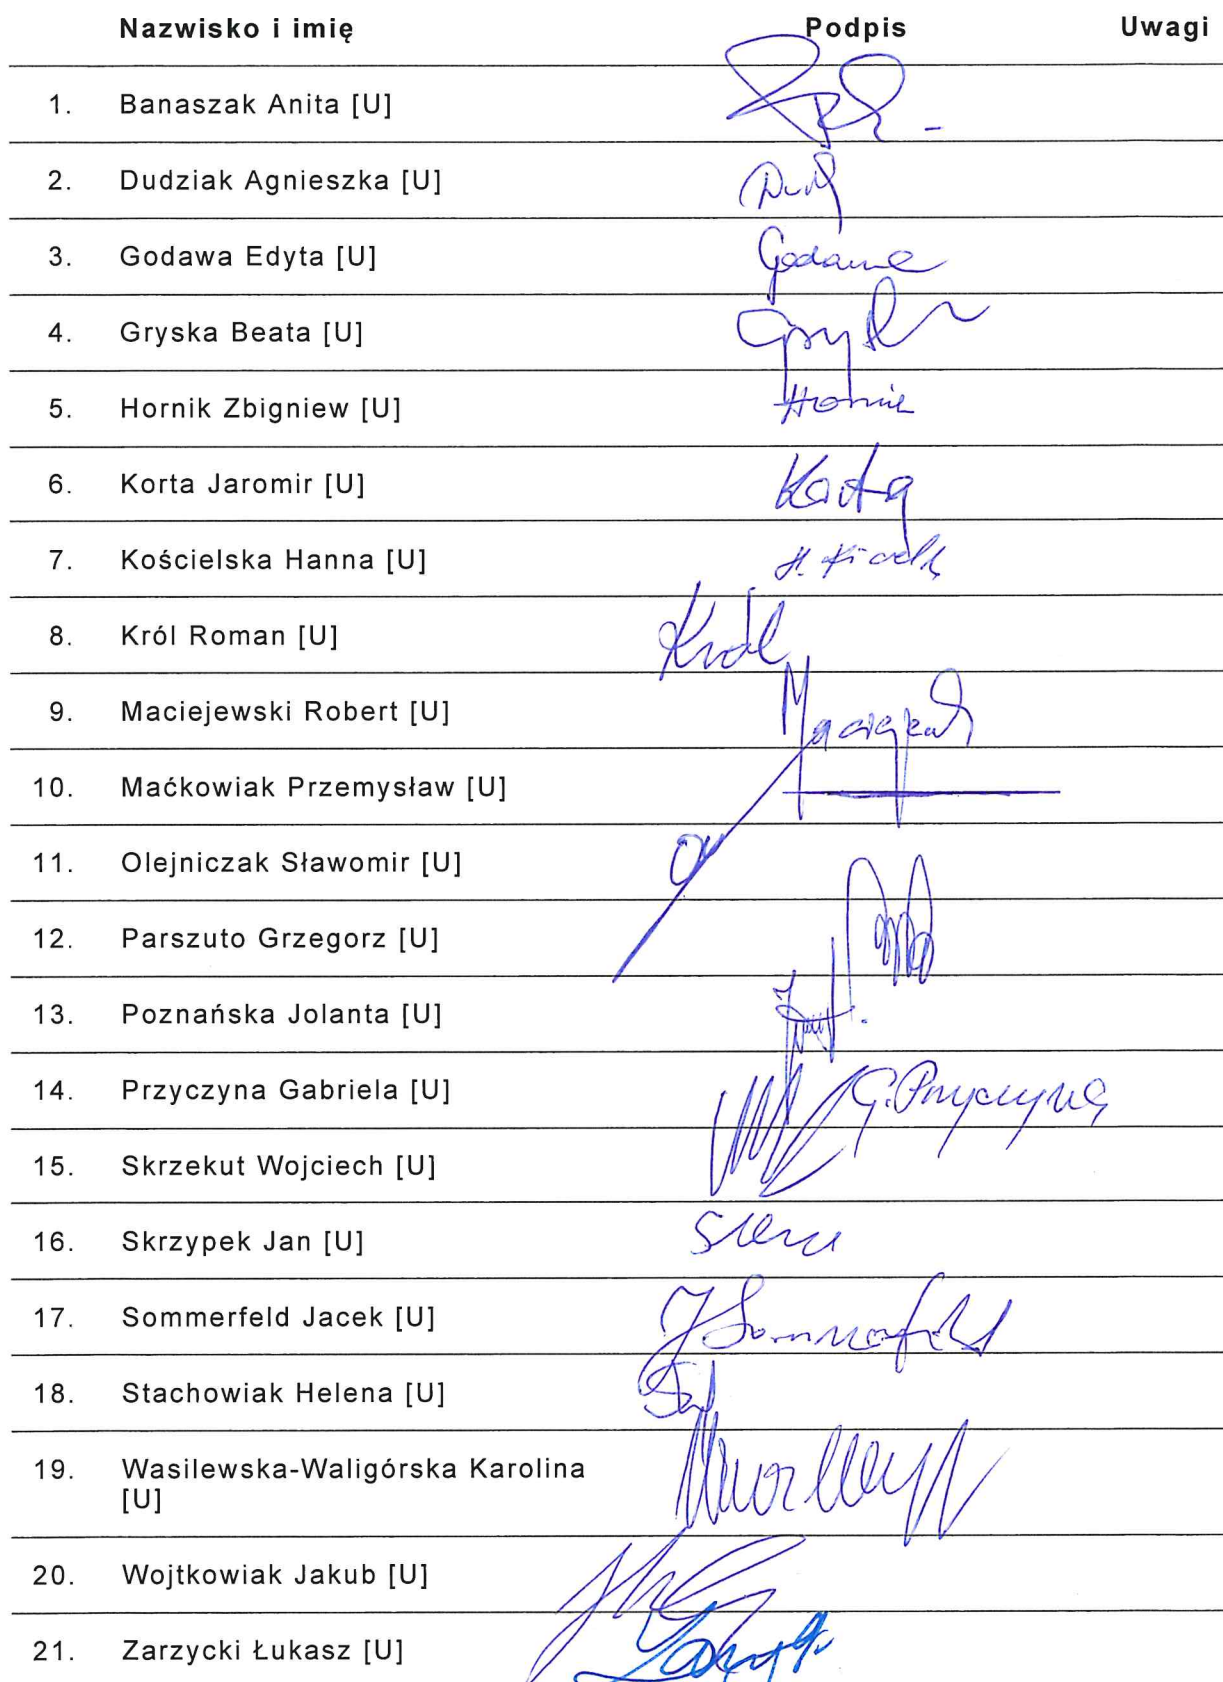 Nazwisko i imię Podpis Uwagi
1. Banaszak Anita [U]
2. Dudziak Agnieszka [U]
3. Godawa Edyta [U] Godawa
4. Gryska Beata [U]
5. Hornik Zbigniew [U] Hornik
6. Korta Jaromir [U] Korta
7. Kościelska Hanna [U]
8. Król Roman [U] Król
9. Maciejewski Robert [U]
10. Maćkowiak Przemysław [U]
11. Olejniczak Sławomir [U]
12. Parszuto Grzegorz [U]
13. Poznańska Jolanta [U]
14. Przyczyna Gabriela [U] G. Przyczyna
15. Skrzekut Wojciech [U]
16. Skrzypek Jan [U]
17. Sommerfeld Jacek [U] J Sommerfeld
18. Stachowiak Helena [U]
19. Wasilewska-Waligórska Karolina
[U]
20. Wojtkowiak Jakub [U]
21. Zarzycki Łukasz [U]